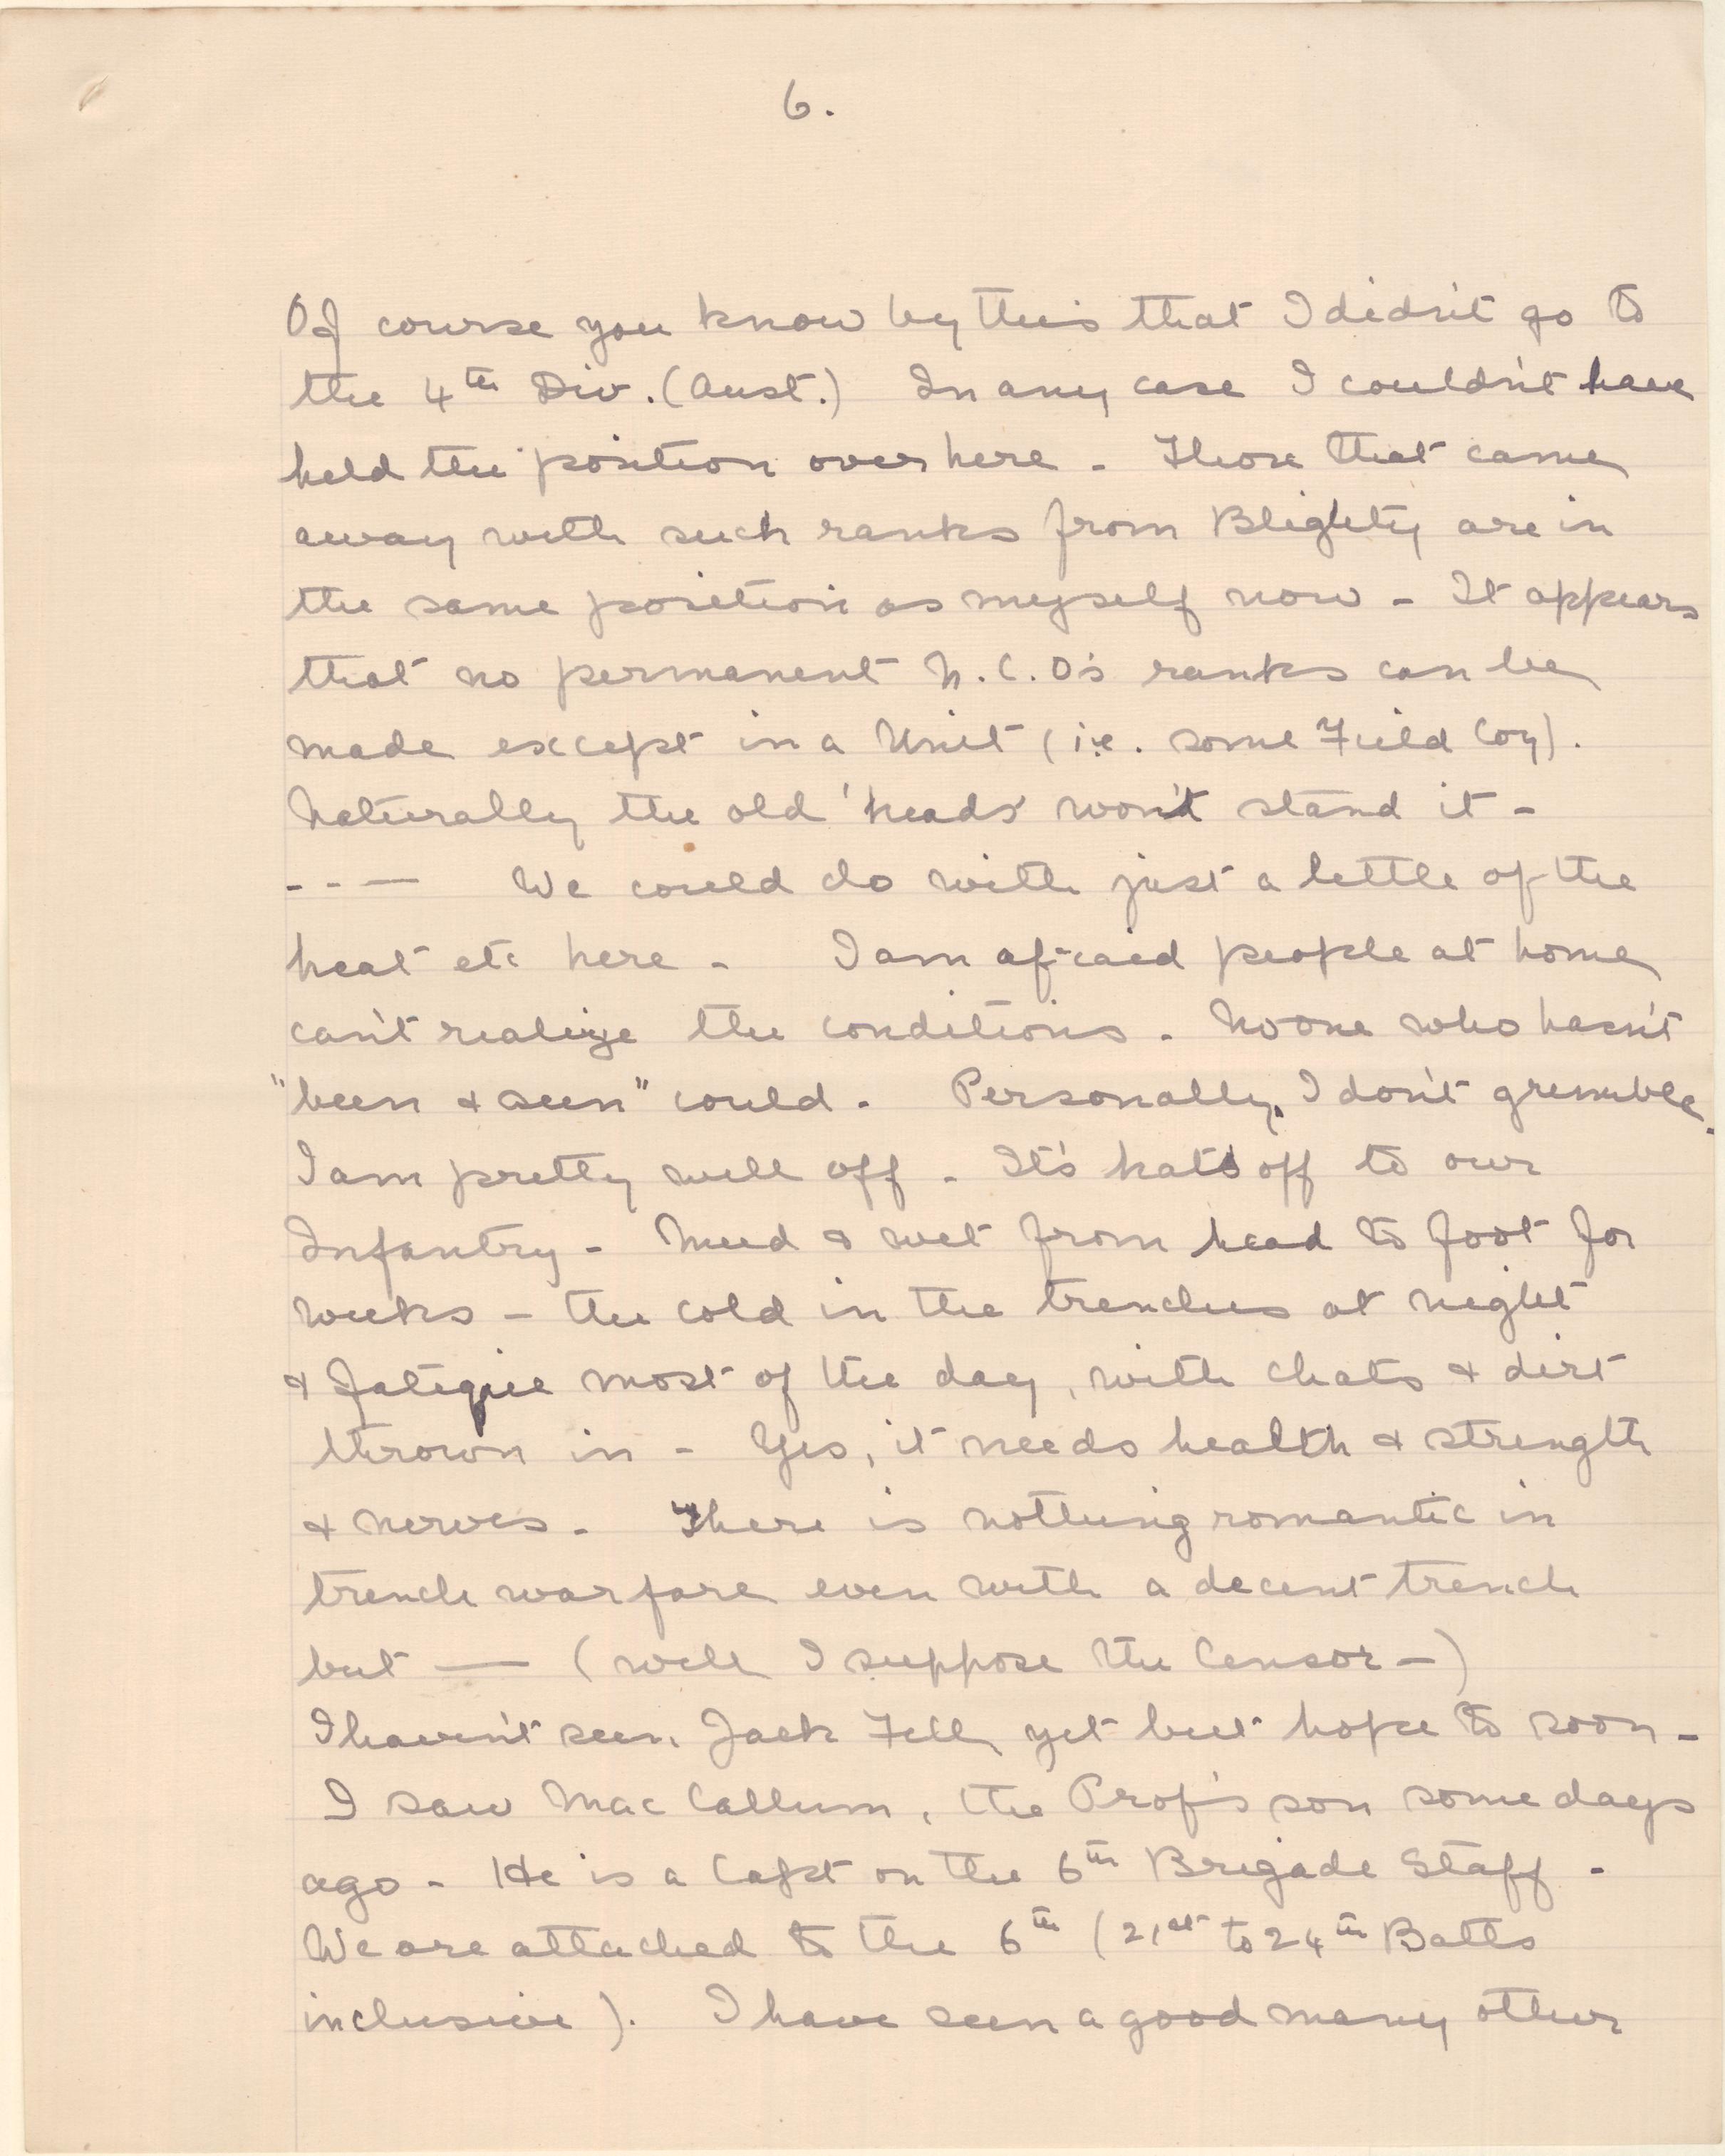 6.
Of course you know by this that I didn't go to
the 4th Div. (Aust.) In any case I couldn't have
held the position over here - Those that came
away with such ranks from Blighty are in
the same position as myself now - It appears
that no permanent N.C.O's ranks can be
made except in a Unit (i.e. some Field Coy).
Naturally the old 'heads' won't stand it -
- - — We could do with just a little of the
heat etc here - I am afraid people at home
can't realize the conditions - No one who hasn't
"been & seen" could - Personally, I don't grumble.
I am pretty well off - It's hats off to our
Infantry - Mud & wet from head to foot for
weeks - the cold in the trenches at night
& fatigue most of the day, with chats & dirt
thrown in - Yes, it needs health & strength
& nerves - There is nothing romantic in
trench warfare even with a decent trench
but — (well I suppose the Censor -)
I haven't seen Jack Fell yet but hope to soon -
I saw MacCallum, the Prof's son some days
ago - He is a Capt on the 6th Brigade Staff -
We are attached to the 6th (21st to 24th Batts
inclusive). I have seen a good many other